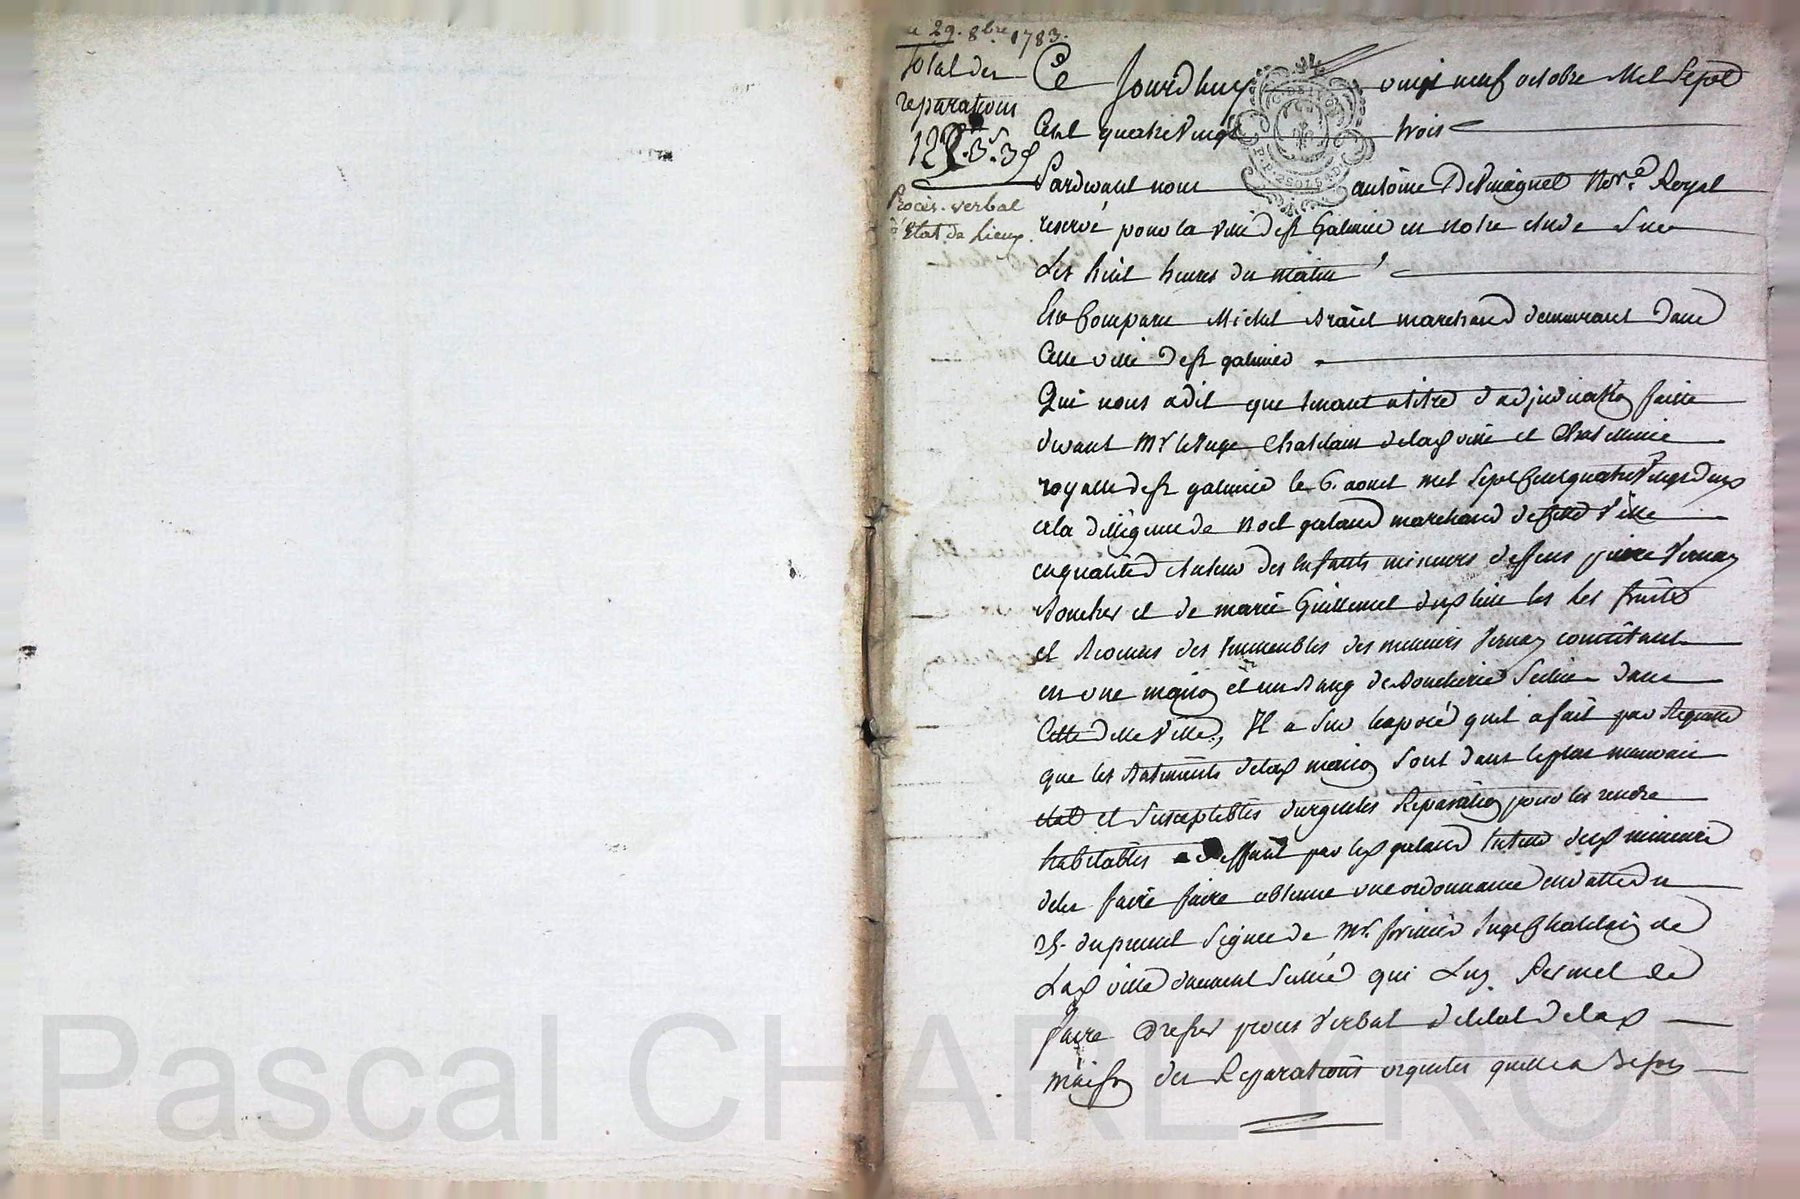 29. 8bre 1783.
total des
reparations
Procès-verbal
Etat de Lieux.
Ce Jourdhuy vingt neuf octobre Mil Sept
Cent quatre Vingt trois
Pardevant nous antoine Nore Royal
reservé pour la Ville de st Galmier en notre etude Sur
Les huit heures du matin
En Comparu Michel marchand demeurant Dans
Cette ville de st galmier
Qui nous a dit que tenant a titre d adjudication faitte
devant Mr le Juge Chatelain de lad ville et Chatellenie
royalle de st galmier le 6. aoust mil Sept Cent quatre Vingt Deux
a la dilligence de Noel galand marchand de cette Ville
en qualité de tuteur des Enfants mineurs de deffunt pierre Vernay
Boucher et de marie les fruits
et Revenus des Immeubles des mineurs Vernay consistant
en une maison et un Bang de Boucherie Scitué dans
Cette ditte Ville, Il a Sur Lexposé quil a fait par Requette
que les Batiments de lad maison Sont dans le plus mauvais
etat et Susceptibles durgentes Reparations pour les rendre
habitables a deffaut par led galand tuteur desd mineurs
de les faire faire obtenu une ordonnance en datte du
25. du present Signee de Mr. Juge Chatelain de
Lad ville duement Scellé qui Luy Permet de
faire Dresser procès Verbal de letat de lad
maison des Reparations urgentes quelle a Besoin
Pascal CHARLEYRON